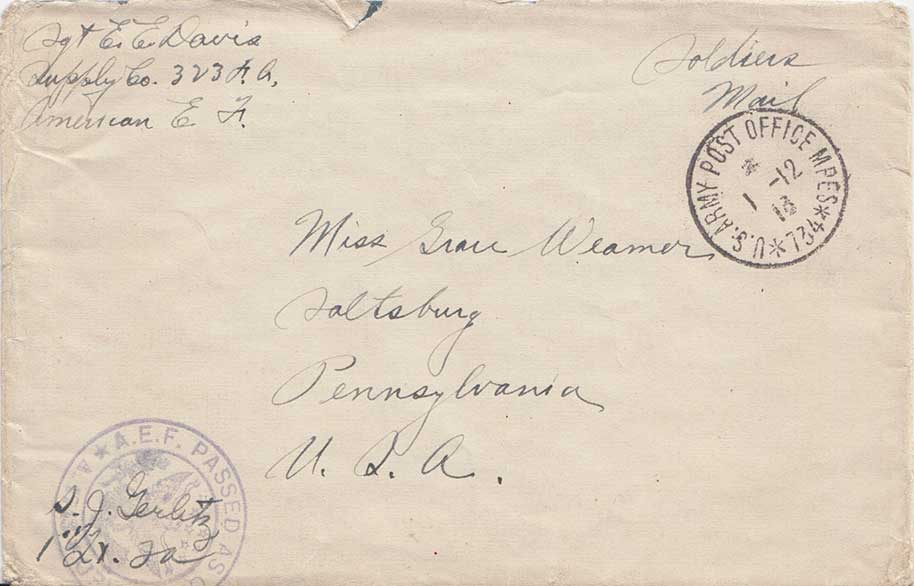 Sgt E. E. Davis
Supply Co. 323 F. A.
American E. F.
Soldiers
Mail
U.S. ARMY POST OFFICE MPES * 724 *
1 -12
18
Miss Grace Weamer
Saltsburg
Pennsylvania
U. S. A.
A.E.F. PASSED AS
S. J. Gerlitz
1st Lt. FA